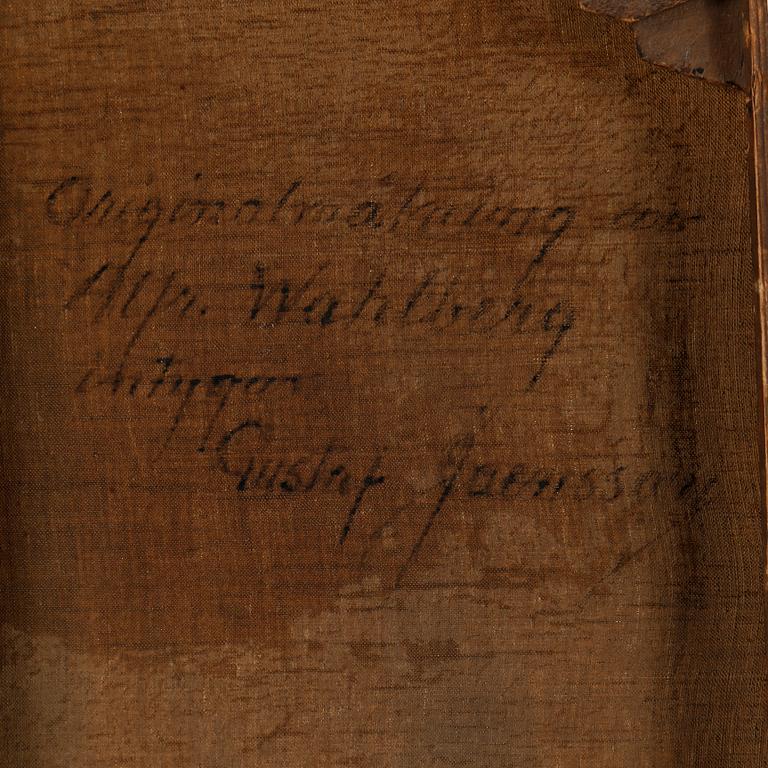 Originalmålning av
Alfr. Wahlberg
intygar
Gustaf Jaensson